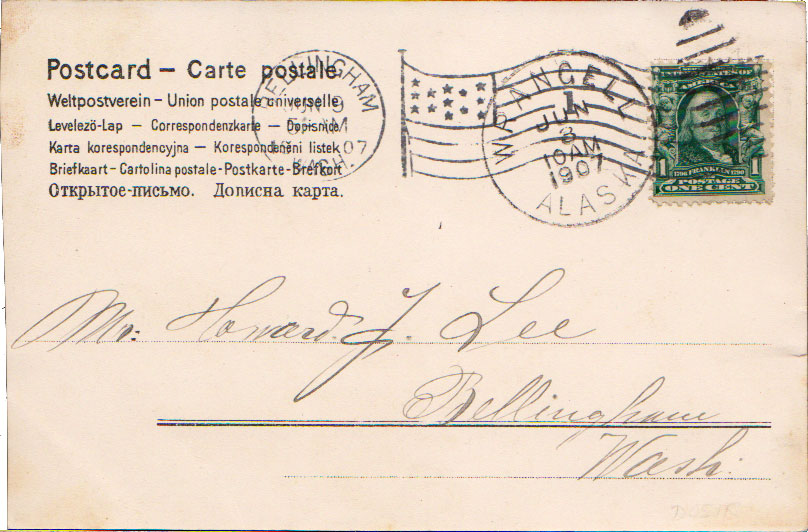 Postcard – Carte postale
Weltpostverein – Union postale universelle
Levelező-Lap – Correspondenzkarte – Dopisnice
Karta korespondencyjna – Korespondenéni listek
Briefkaart – Cartolina postale - Postkarte - Brefkort
Открытое-письмо. Дописна карта.
BELLINGHAM
07
WASH.
WRANGELL
1
JUN
3
10AM
1907
ALASKA
1 1790 FRANKLIN 1790 1
POSTAGE
ONE CENT
Mr. Howard. J. Lee
Bellingham
Wash.